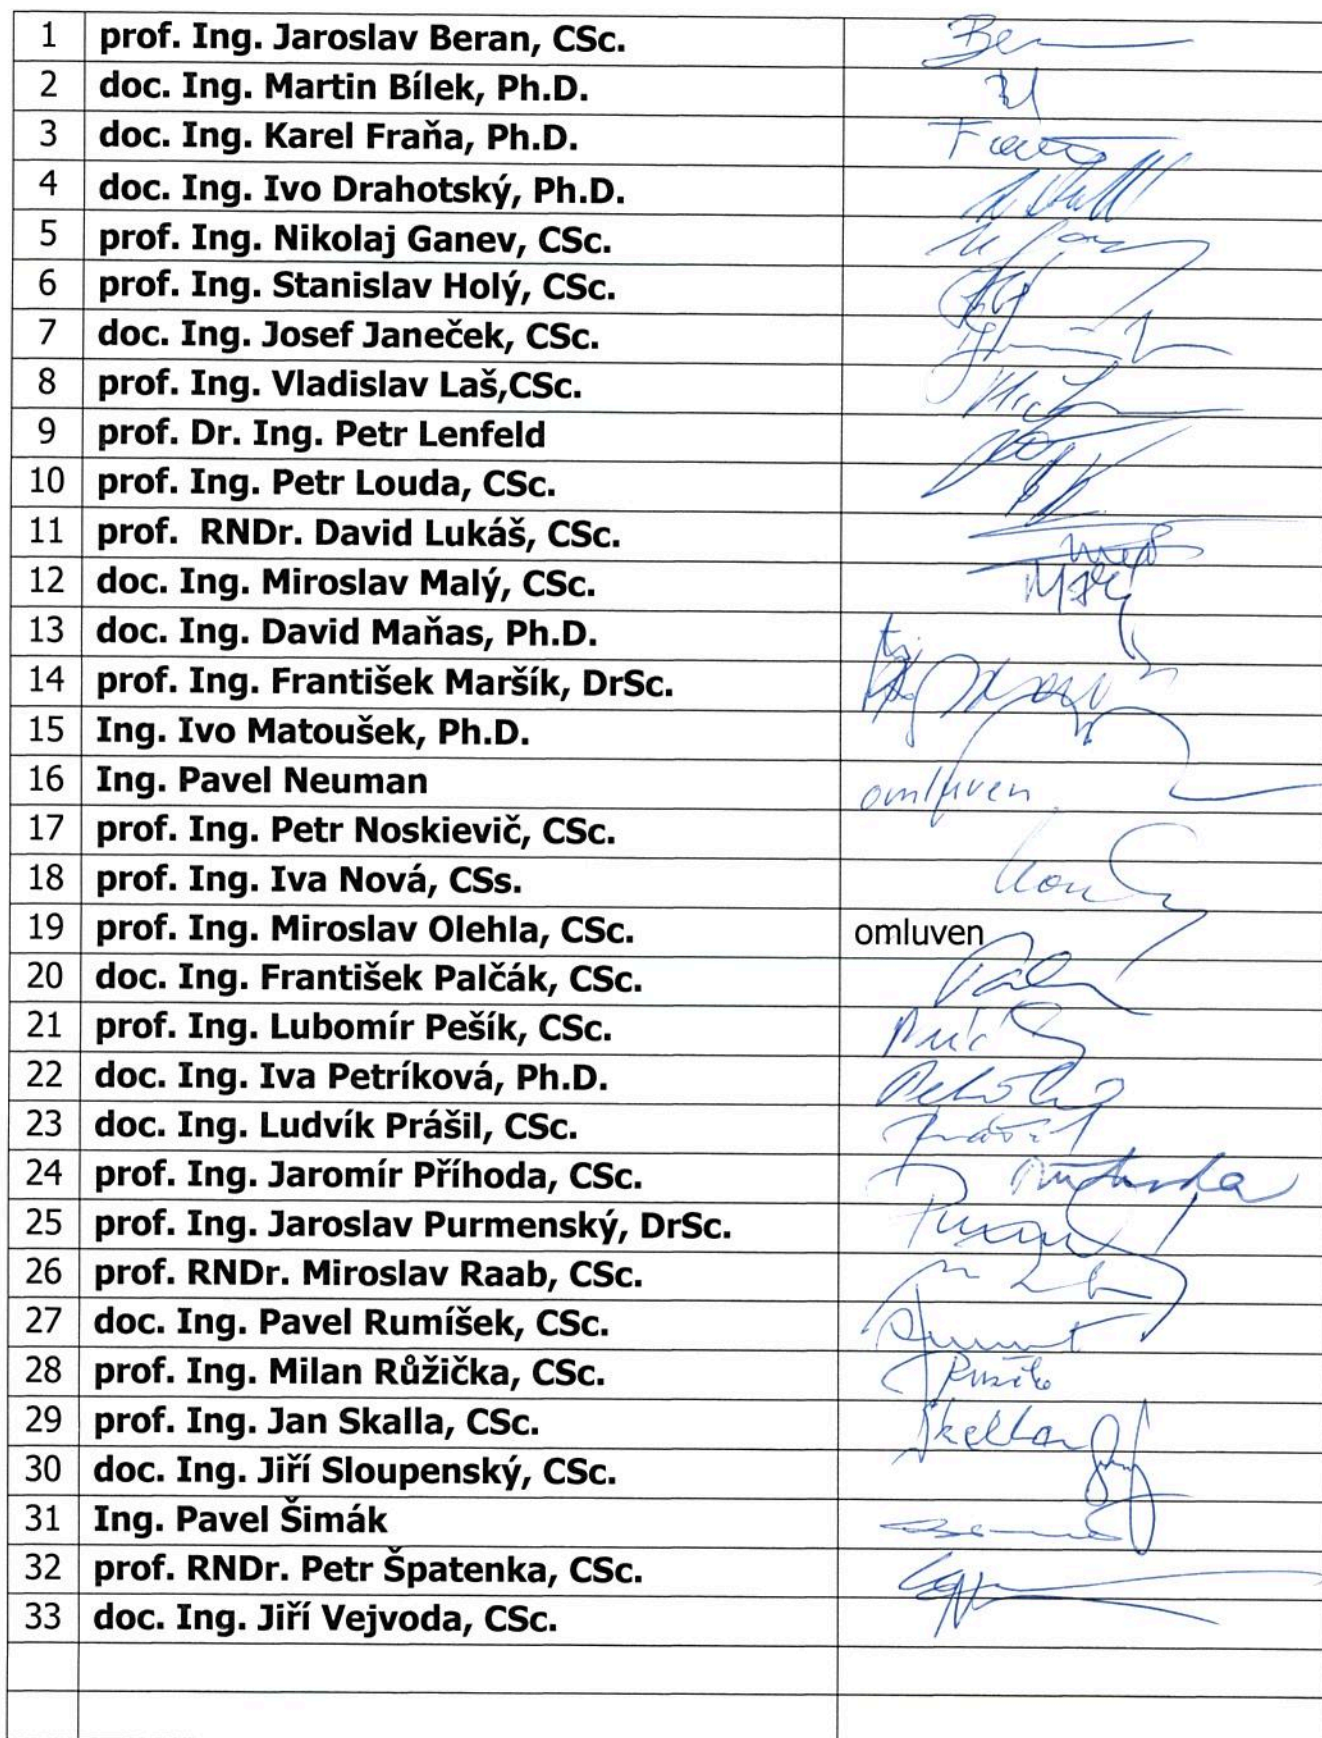 1 prof. Ing. Jaroslav Beran, CSc.
2 doc. Ing. Martin Bílek, Ph.D.
3 doc. Ing. Karel Fraňa, Ph.D.
4 doc. Ing. Ivo Drahotský, Ph.D.
5 prof. Ing. Nikolaj Ganev, CSc.
6 prof. Ing. Stanislav Holý, CSc.
7 doc. Ing. Josef Janeček, CSc.
8 prof. Ing. Vladislav Laš,CSc.
9 prof. Dr. Ing. Petr Lenfeld
10 prof. Ing. Petr Louda, CSc.
11 prof. RNDr. David Lukáš, CSc.
12 doc. Ing. Miroslav Malý, CSc.
13 doc. Ing. David Maňas, Ph.D.
14 prof. Ing. František Maršík, DrSc.
15 Ing. Ivo Matoušek, Ph.D.
16 Ing. Pavel Neuman omluven
17 prof. Ing. Petr Noskievič, CSc.
18 prof. Ing. Iva Nová, CSs.
19 prof. Ing. Miroslav Olehla, CSc. omluven
20 doc. Ing. František Palčák, CSc.
21 prof. Ing. Lubomír Pešík, CSc.
22 doc. Ing. Iva Petríková, Ph.D.
23 doc. Ing. Ludvík Prášil, CSc.
24 prof. Ing. Jaromír Příhoda, CSc.
25 prof. Ing. Jaroslav Purmenský, DrSc.
26 prof. RNDr. Miroslav Raab, CSc.
27 doc. Ing. Pavel Rumíšek, CSc.
28 prof. Ing. Milan Růžička, CSc.
29 prof. Ing. Jan Skalla, CSc.
30 doc. Ing. Jiří Sloupenský, CSc.
31 Ing. Pavel Šimák
32 prof. RNDr. Petr Špatenka, CSc.
33 doc. Ing. Jiří Vejvoda, CSc.